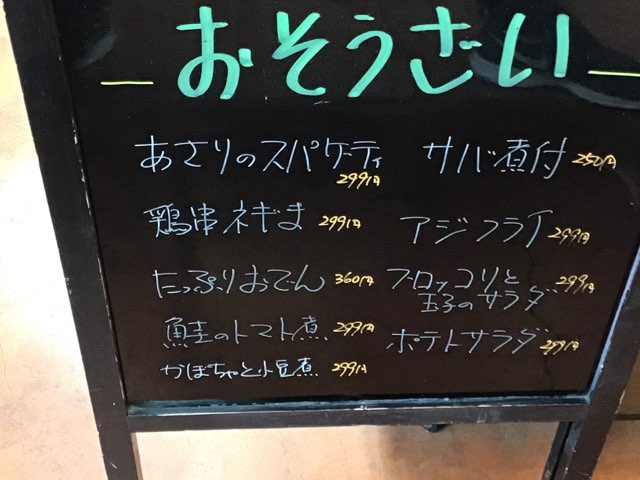 おそうざい
あさりのスパゲーティ
299円
鶏串ネぎま 299円
たっぷりおでん 360円
鮭のトマト煮 299円
かぼちゃと小豆煮 299円
サバ煮付 250円
アジフライ 299円
ブロッコリと 299円
玉子のサラダ
ポテトサラダ 299円